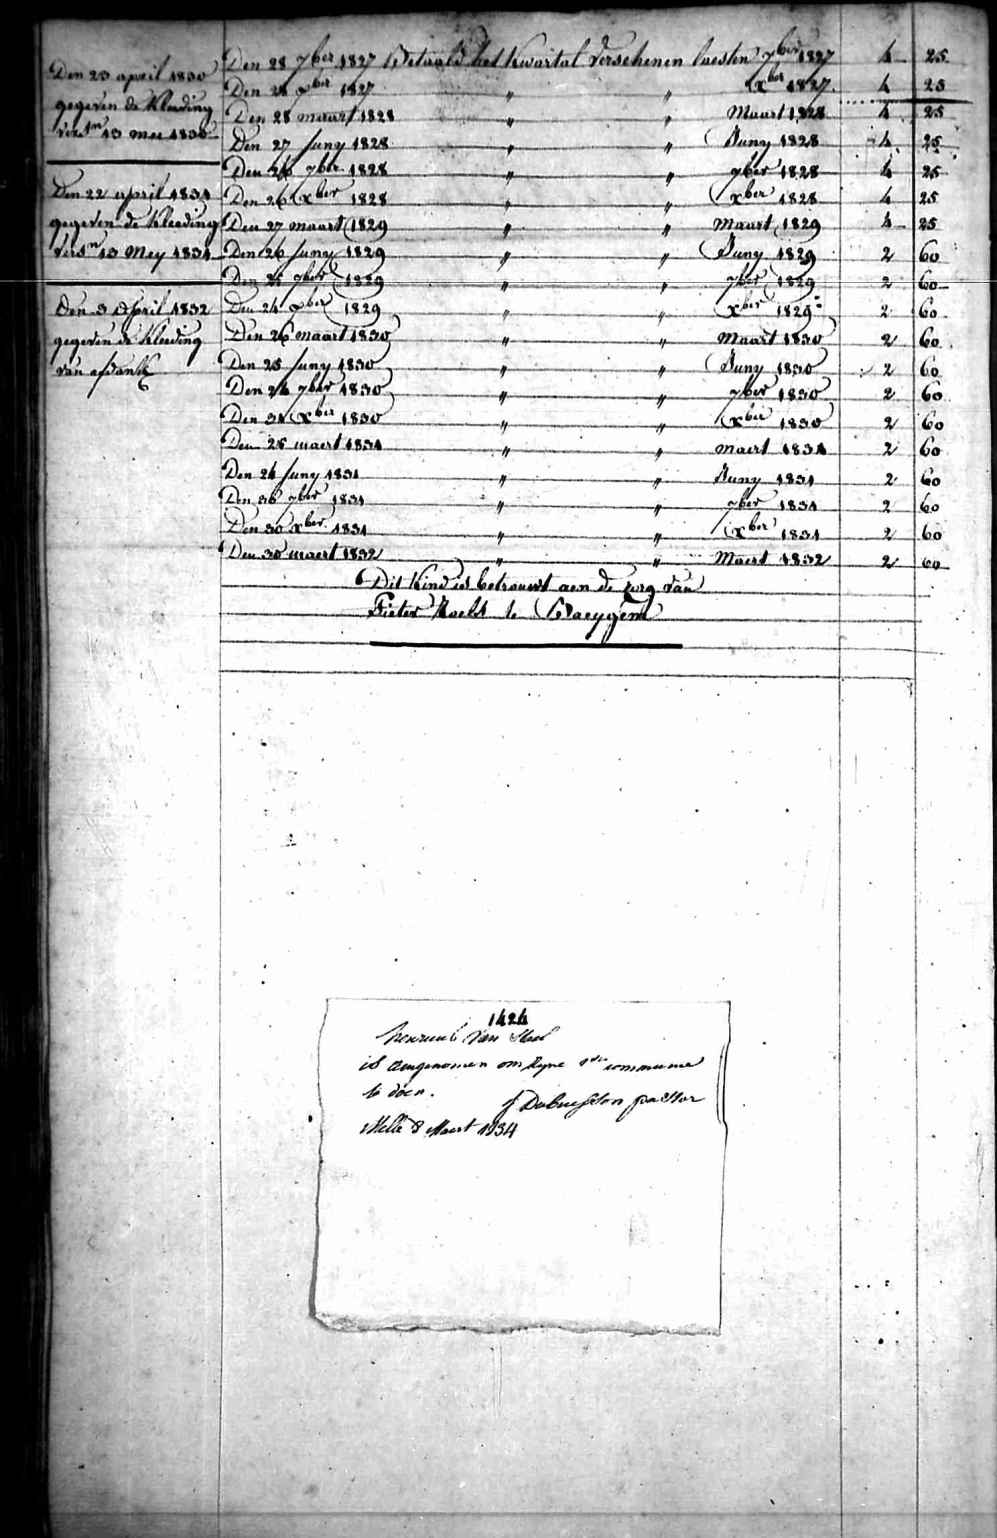 Den 23 april 1830
gegeven de kleeding
vers^tn 13 mei 1830
Den 22 april 1831
gegeven de kleeding
vers^tn 13 Mey 1831
Den 3 April 1832
gegeven de kleeding
van
Den 28 7ber 1827 Betaald het kwartal verschenen laesten 7ber 1827 4 25
Den 21 xber 1827 " " xber 1827 4 25
Den 28 maart 1828 " " Maart 1828 4 25
Den 27 Juny 1828 " " Juny 1828 4 25
Den 26 7ber 1828 " " 7ber 1828 4 25
Den 26 xber 1828 " " xber 1828 4 25
Den 27 maart 1829 " " Maart 1829 4 25
Den 26 Juny 1829 " " Juny 1829 2 60
Den 7ber 1829 " " 7ber 1829 2 60
Den 24 xber 1829 " " xber 1829 2 60
Den 26 maart 1830 " " Maart 1830 2 60
Den 25 Juny 1830 " " Juny 1830 2 60
Den 24 7ber 1830 " " 7ber 1830 2 60
Den 31 xber 1830 " " xber 1830 2 60
Den 25 maert 1831 " " maert 1831 2 60
Den 24 Juny 1831 " " Juny 1831 2 60
Den 30 7ber 1831 " " 7ber 1831 2 60
Den 30 xber 1831 " " xber 1831 2 60
Den 30 maert 1832 " " Maert 1832 2 60
Dit kind is betrouwt aen de zorg van
Pieter te
1424
van
is aengenomen om zyne 1ste communie
te doen.
pastor
Melle 8 Maert 1834